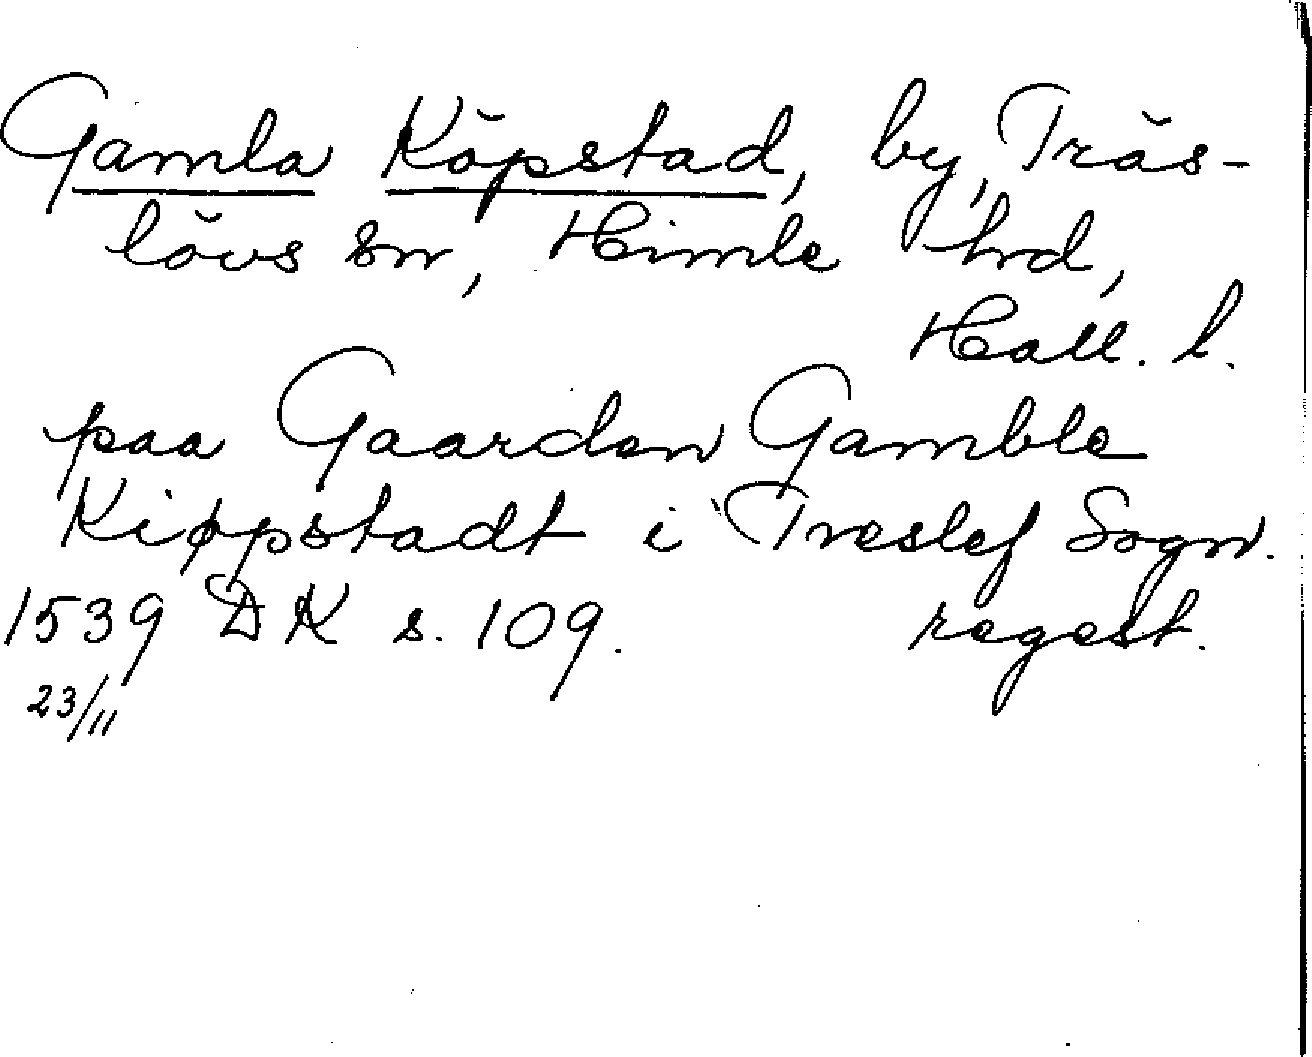 Gamla Köpstad, by, Träs-
lövs sn, Himle hd,
Hall. l.
paa Gaarden Gamble
Kiøpstadt i Treslef Sogn.
1539 DK s. 109. regest.
23/11